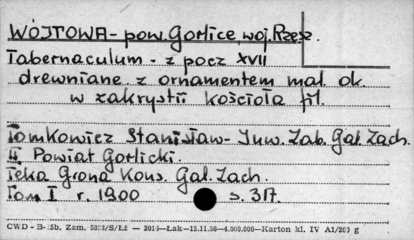 WÓJTOWA - pow. Gorlice, woj. Rzesz.
Tabernaculum - z pocz XVII
drewniane z ornamentem mal. ok.
w zakrystii kościoła fil.
Tomkowicz Stanisław - Inw. Zab. Gal. Zach.
II. Powiat Gorlicki.
Teka Grona Kons. Gal. Zach.
Tom I r. 1900 s. 317.
CWD - B- Zam. — Łak—15.11.56—4.000.000—Karton kl. IV A1/200 g